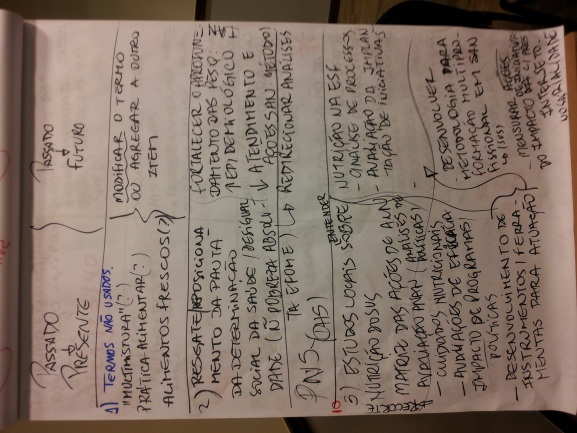 PASSADO
PRESENTE
PASSADO
FUTURO
1) TERMOS NÃO USADOS:
"MULTIMISTURA"(?)
PRÁTICA ALIMENTAR(?)
ALIMENTOS FRESCOS(?)
MODIFICAR O TERMO
OU AGREGAR A OUTRO
ITEM
2) RESGATE/REPOSICIONA
MENTO DA PAUTA
DA DETERMINAÇÃO
SOCIAL DA SAÚDE/DESIGUAL
DADE (Ñ POBREZA ABSOLU-
TA E FOME)
FORTALECER O APROFUN-
DAMENTO DAS PESQ.
EPIDEMIOLÓGICO
↓ ATENDIMENTO E
AÇÕES SAN
MÉTODO
↳ REDIRECIONAR ANÁLISES
PNS (DAS)
10
3) ESTUDOS LOCAIS SOBRE
ENTENDER
NUTRIÇÃO DO SUS
MATRIZ DAS AÇÕES DE ALIM
AVALIAÇÃO PNAN (ANÁLISES DE
POLÍTICAS)
- CUIDADOS NUTRICIONAIS
- AVALIAÇÕES DE
IMPACTO DE PROGRAMAS/
POLÍTICAS
- DESENVOLVIMENTO DE
INSTRUMENTOS (FERRA-
MENTAS PARA ATUAÇÃO)
NUTRIÇÃO NA ESF
- ANÁLISE DE PROCESSOS
- AVALIAÇÃO DA IMPLAN
TAÇÃO DE INICIATIVAS
- DESENVOLVER
METODOLOGIA PARA
FORMAÇÃO MULTIPRO-
FISSIONAL EM SAN
- MENSURAR AÇÕES
DO IMPACTO DAS
INTERSETO-